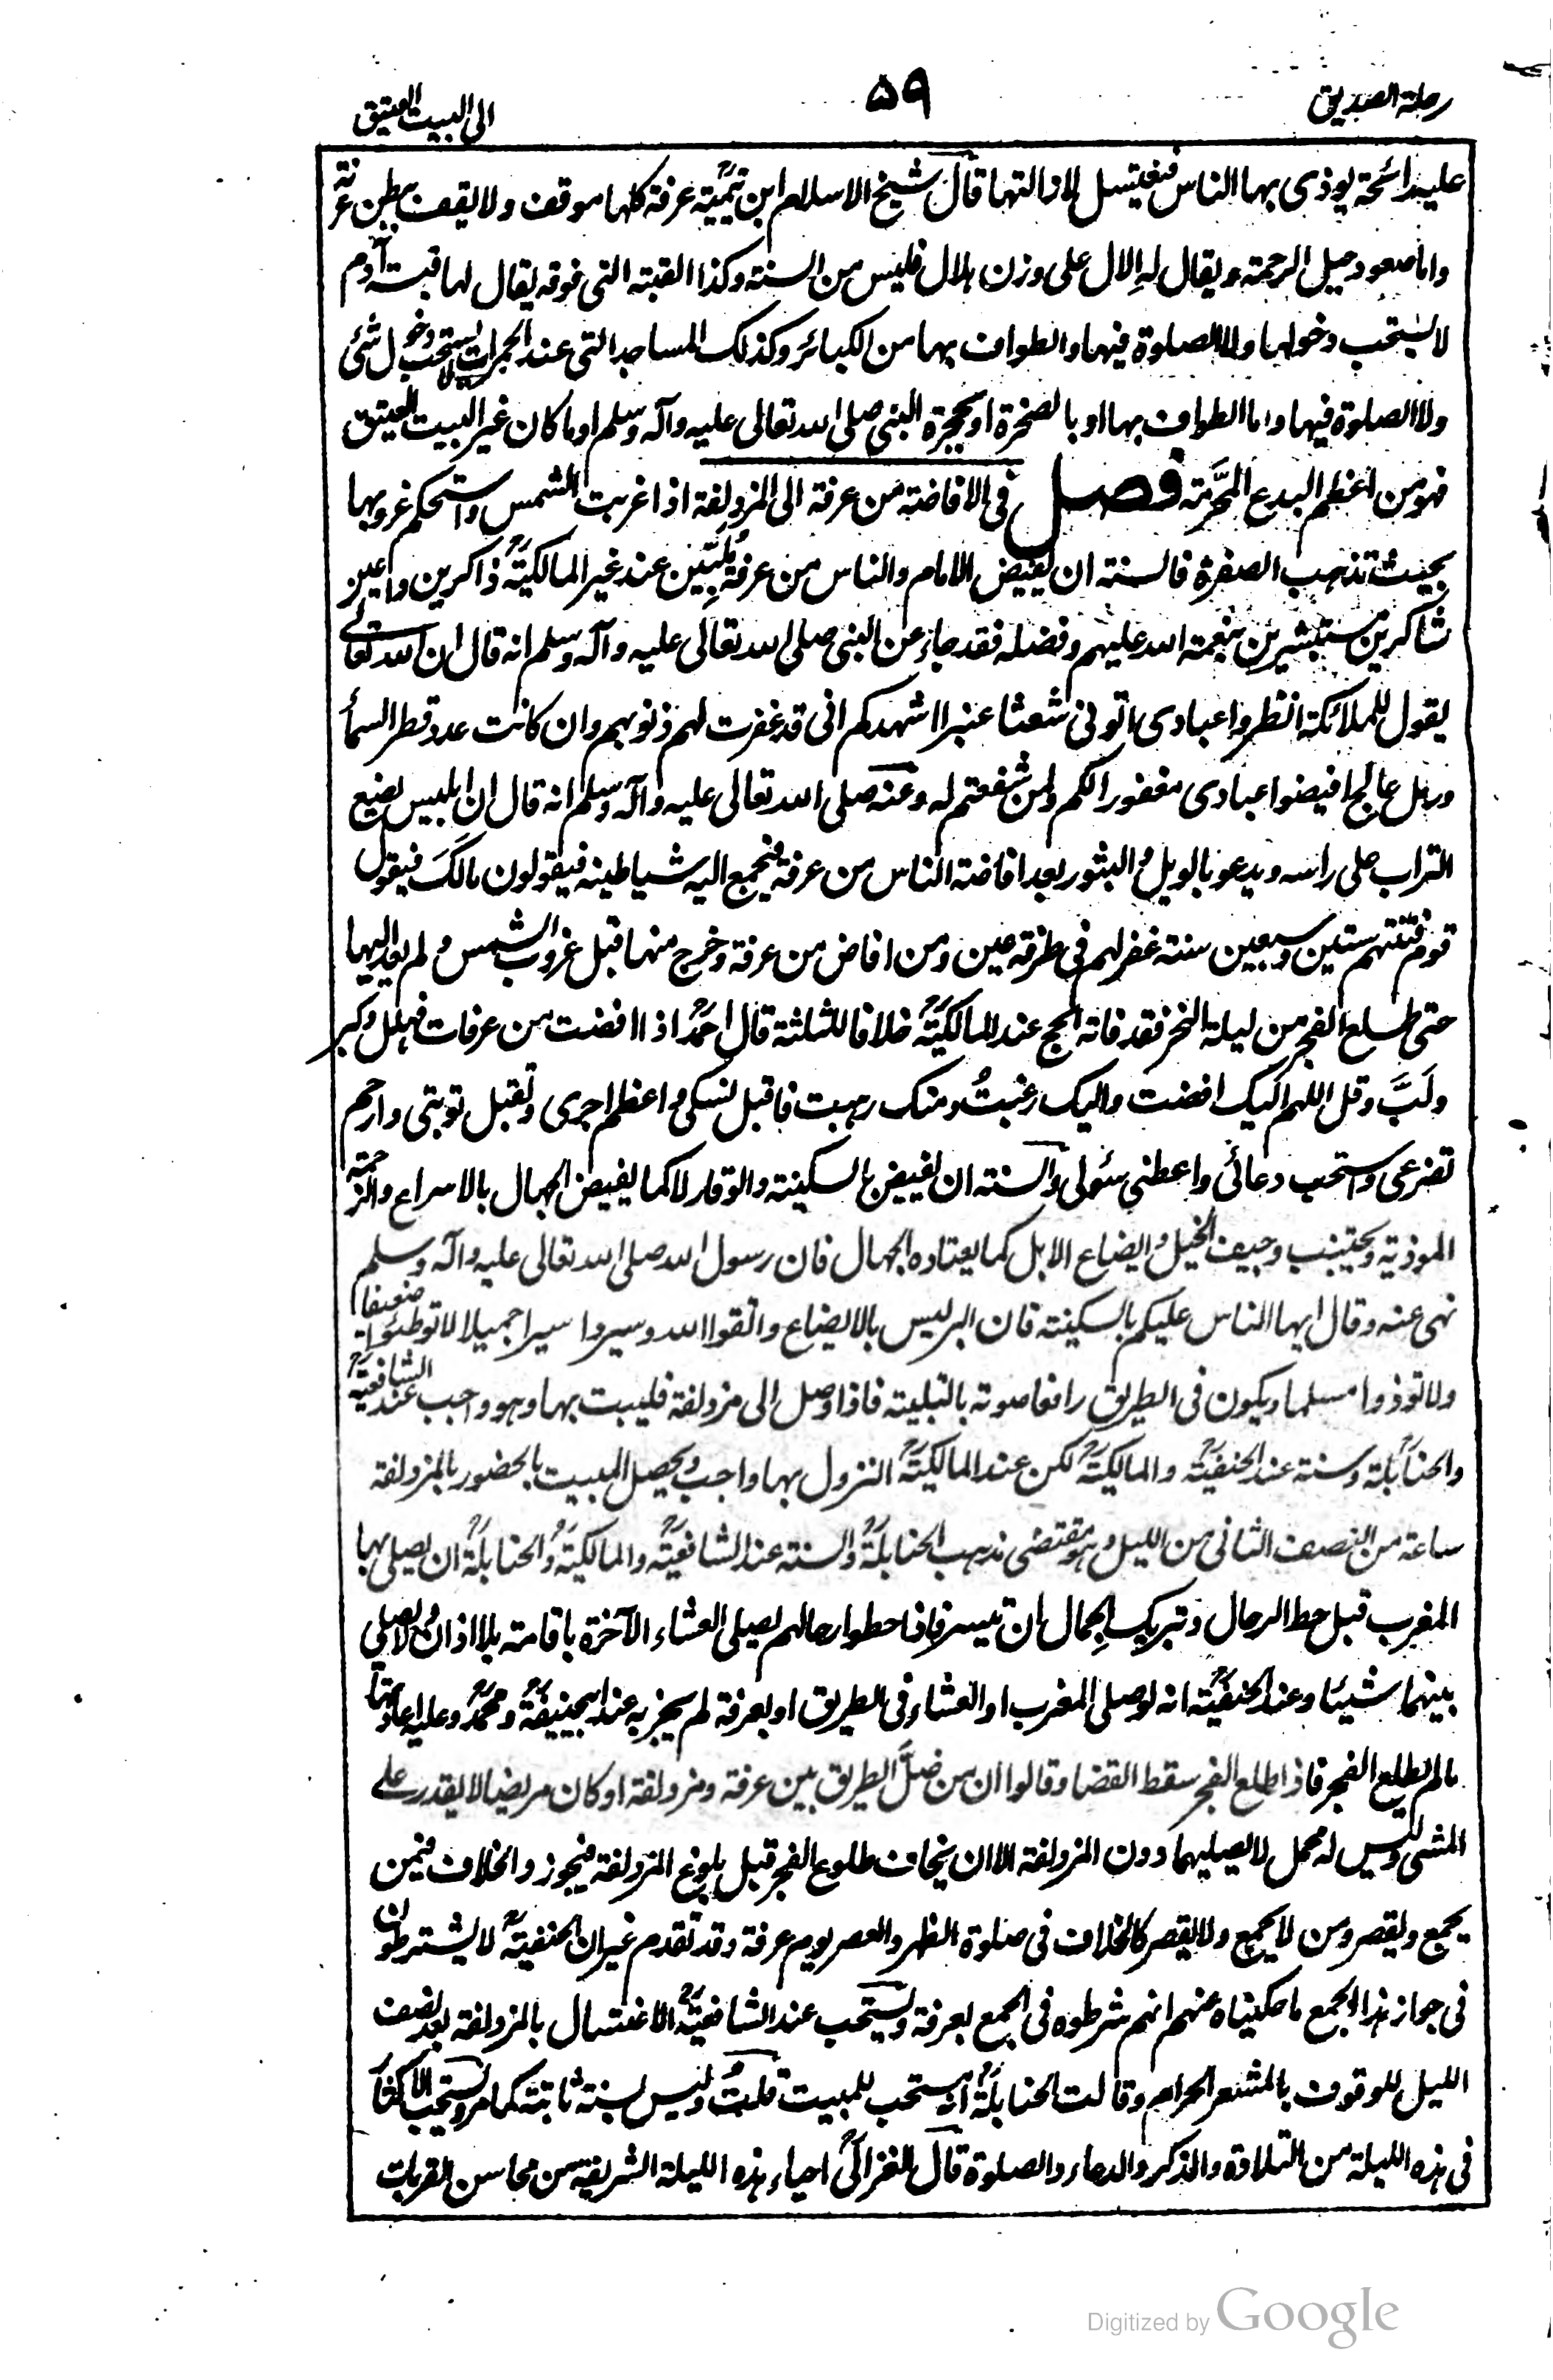 رحلة الصديق ٥٩ الى البيت العتيق
عليه رائحة يوذى بها الناس فيغتسل لازالتها قال شيخ الاسلام ابن تيميةؒ عرفة كلها موقف ولا يقف ببطن عرنة
واما صعود جبل الرحمة ويقال له اِلال على وزن هلال فليس من السنة وكذا القبة التى فوقه يقال لها قبة آدم
لا يستحب دخولها ولا الصلوة فيها والطواف بها من الكبائر وكذلك المساجد التى عند الجمرات لا يستحب دخول شئ
ولا الصلوة فيها واما الطواف بها او بالصخرة او بحجرة النبى صلى الله تعالى عليه وآله وسلم او ما كان غير البيت العتيق
فهو من اعظم البدع المحَّرمة فصل فى الافاضة من عرفة الى المزدلفة اذا غربت الشمس واستحكم غروبها
بحيث تذهب الصفرة فالسنة ان يفيض الامام والناس من عرفة مُلبِّين عند غير المالكيةؒ ذاكرين داعين
شاكرين مستبشرين بنعمة الله عليهم وفضله فقد جاء عن النبى صلى الله تعالى عليه وآله وسلم انه قال ان الله تعالى
يقول للملائكة انظروا عبادى اتونى شعثا غبرا اشهدكم انى قد غفرت لهم ذنوبهم وان كانت عدد قطر السماء
ورمل عالج افيضوا عبادى مغفورا لكم ولمن شفعتم له وعنه صلى الله تعالى عليه وآله وسلم انه قال ان ابليس يضع
التراب على راسه ويدعو بالويل والثبور بعد افاضة الناس من عرفة فيجمع اليه شياطينه فيقولون مالَكَ فيقول
قوم فتنتهم ستين وسبعين سنة غفر لهم فى طرفة عين ومن افاض من عرفة وخرج منها قبل غروب الشمس ولم يعد اليها
حتى طلع الفجر من ليلة النحر فقد فاته الحج عند المالكيةؒ خلافا للثلثة قال احمدؒ اذا افضت من عرفات فهلل وكبر
ولَبَّ وقل اللهم اليك افضت واليك رغبتُ ومنك رهبت فاقبل نسكى واعظم اجرى وتقبل توبتى وارحم
تضرعى واستجب دعائى واعطنى سئولى والسنة ان يفيض بالسكينة والوقار لا كما يفيض الجهال بالاسراع والزحمة
الموذية ويجتنب وجيف الخيل وايضاع الابل كما يعتاده الجهال فان رسول الله صلى الله تعالى عليه وآله وسلم
نهى عنه وقال ايها الناس عليكم بالسكينة فان البر ليس بالايضاع واتقوا الله وسيروا سيرا جميلا لا توطئوا ضعيفا
ولا توذوا مسلما ويكون فى الطريق رافعا صوته بالتلبية فاذا وصل الى مزدلفة فليبت بها وهو واجب عند الشافعيةؒ
والحنابلةؒ وسنة عند الحنفيةؒ والمالكيةؒ لكن عند المالكيةؒ النزول بها واجب ويحصل المبيت بالحضور بالمزدلفة
ساعة من النصف الثانى من الليل وهو مقتضى مذهب الحنابلةؒ والسنة عند الشافعيةؒ والمالكيةؒ والحنابلةؒ ان يصلى بها
المغرب قبل حط الرحال وتبريك الجِمال ان تيسر فاذا حطوا رحالهم يصلى العشاء الآخرة باقامة بلا اذان ولا يصلى
بينهما شيئا وعند الحنفيةؒ انه لو صلى المغرب او العشاء فى الطريق او بعرفة لم يجز به عند ابيحنيفةؒ ومحمدؒ وعليه اعادتها
مالم يطلع الفجر فاذا طلع الفجر سقط القضا وقالوا ان من ضلَّ الطريق بين عرفة ومزدلفة او كان مريضا لا يقدر على
المشى وليس له محمل لا يصليهما دون المزدلفة الا ان يخاف طلوع الفجر قبل بلوغ المزدلفة فيجوز والخلاف فيمن
يجمع ويقصر ومن لا يجمع ولا يقصر كالخلاف فى صلوة الظهر والعصر يوم عرفة وقد تقدم غير ان الحنفيةؒ لا يشترطون
فى جواز هذا الجمع ما حكيناه عنهم انهم شرطوه فى الجمع بعرفة ويستحب عند الشافعيةؒ الاغتسال بالمزدلفة بعد نصف
الليل للوقوف بالمشعر الحرام وقالت الحنابلةؒ انه يستحب للمبيت قلتُ وليس بسنة ثابتة كما مر ويستحب الاكثار
فى هذه الليلة من التلاوة والذكر والدعاء والصلوة قال الغزالىؒ احياء هذه الليلة الشريفة من محاسن القربات
Digitized by Google